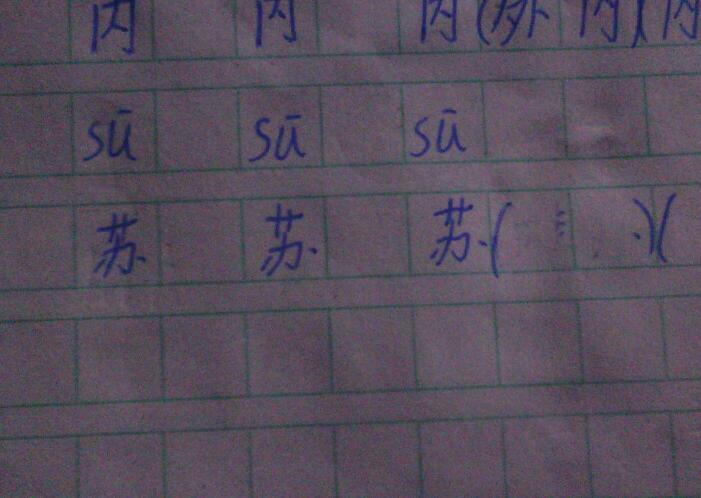 内 内 内(外内)(内
sū sū sū
苏 苏 苏( )(